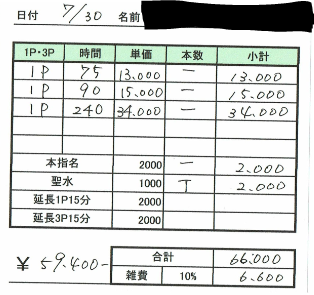 日付 7/30 名前
1P・3P 時間 単価 本数 小計
1P 75 13.000 一 13.000
1P 90 15.000 一 15.000
1P 240 34.000 一 34.000
本指名 2000 一 2.000
聖水 1000 T 2.000
延長1P15分 2000
延長3P15分 2000
¥59.400- 合計 66.000
雑費 10% 6.600